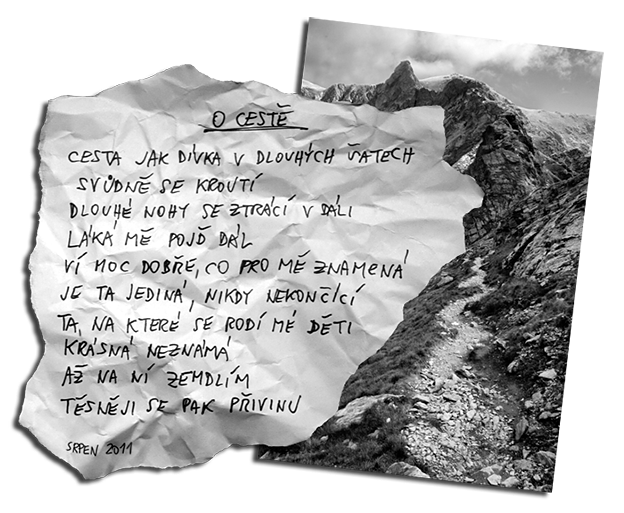 O CESTĚ
CESTA JAK DÍVKA V DLOUHÝCH ŠATECH
SVŮDNĚ SE KROUTÍ
DLOUHÉ NOHY SE ZTRÁCÍ V DÁLI
LÁKÁ MĚ POJĎ DÁL
VÍ MOC DOBŘE, CO PRO MĚ ZNAMENÁ
JE TA JEDINÁ, NIKDY NEKONČÍCÍ
TA, NA KTERÉ SE RODÍ MÉ DĚTI
KRÁSNÁ NEZNÁMÁ
AŽ NA NÍ ZEMDLÍM
TĚSNĚJI SE PAK PŘIVINU
SRPEN 2011